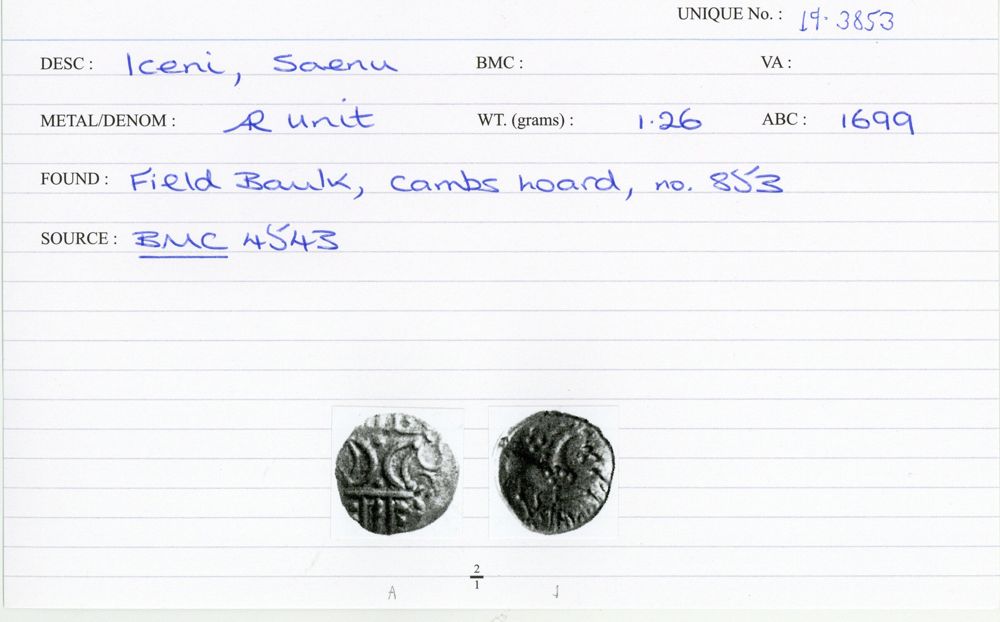 UNIQUE No. : 19.3853
DESC : Iceni, Saenu BMC : VA :
METAL/DENOM : AR unit WT. (grams) : 1.26 ABC : 1699
FOUND : Field Baulk, Cambs hoard, no. 853
SOURCE : BMC 4543
2
1
A J